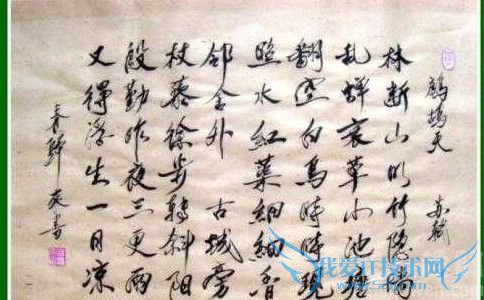 鹧鸪天
林断山明竹隐墙
乱蝉衰草小池塘
翻空白鸟時時現
照水红蕖细细香
邨舍外 古城旁
杖藜徐步转斜阳
殷勤昨夜三更雨
又得浮生一日凉
我爱IT技术网